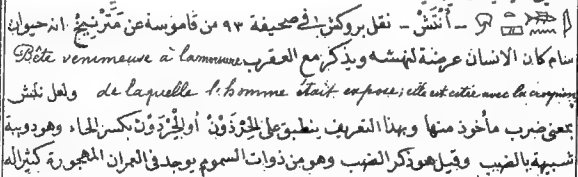 — أَنْتَشْ — نقل بروكش في صحيفة ٩٣ من قاموسه عن مَتَّرْنِيخْ انه حيوان
سام كان الانسان عرضة لنهشه ويذكر مع العقرب Bête venimeuse à la morsure
de laquelle l'homme était exposé; elle est citée avec le scorpion ولعل نتش
بمعنى ضرب مأخوذ منها وبهذا التعريف ينطبق على الخِرْذَوْن أو الحِرْدَوْن بكسر الحاء وهو دويبة
شبيهة بالضب وقيل هو ذكر الضب وهو من ذوات السموم يوجد في العمران المهجورة كثيرا له